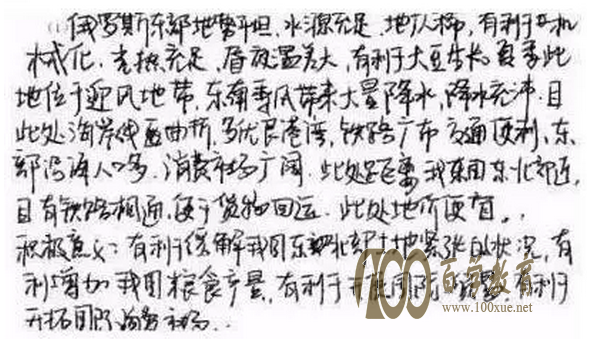 (1) 俄罗斯东部地势平坦,水源充足,地广人稀,有利于农机
械化.光热充足,昼夜温差大,有利于大豆生长,夏季此
地位于迎风地带,东南季风带来大量降水,降水充沛.且
此处海岸线曲折,多优良港湾,铁路广布 交通便利,东
部沿海人口多,消费市场广阔.此处距离我国东北部近,
且有铁路相通,便于货物回运.此处地价便宜..
积极意义:有利于缓解我国东北部土地紧张的状况,有
利增加我国粮食产量,有利于开展国际 有利于
开拓国际消费市场..
100百学教育
www.100xue.net